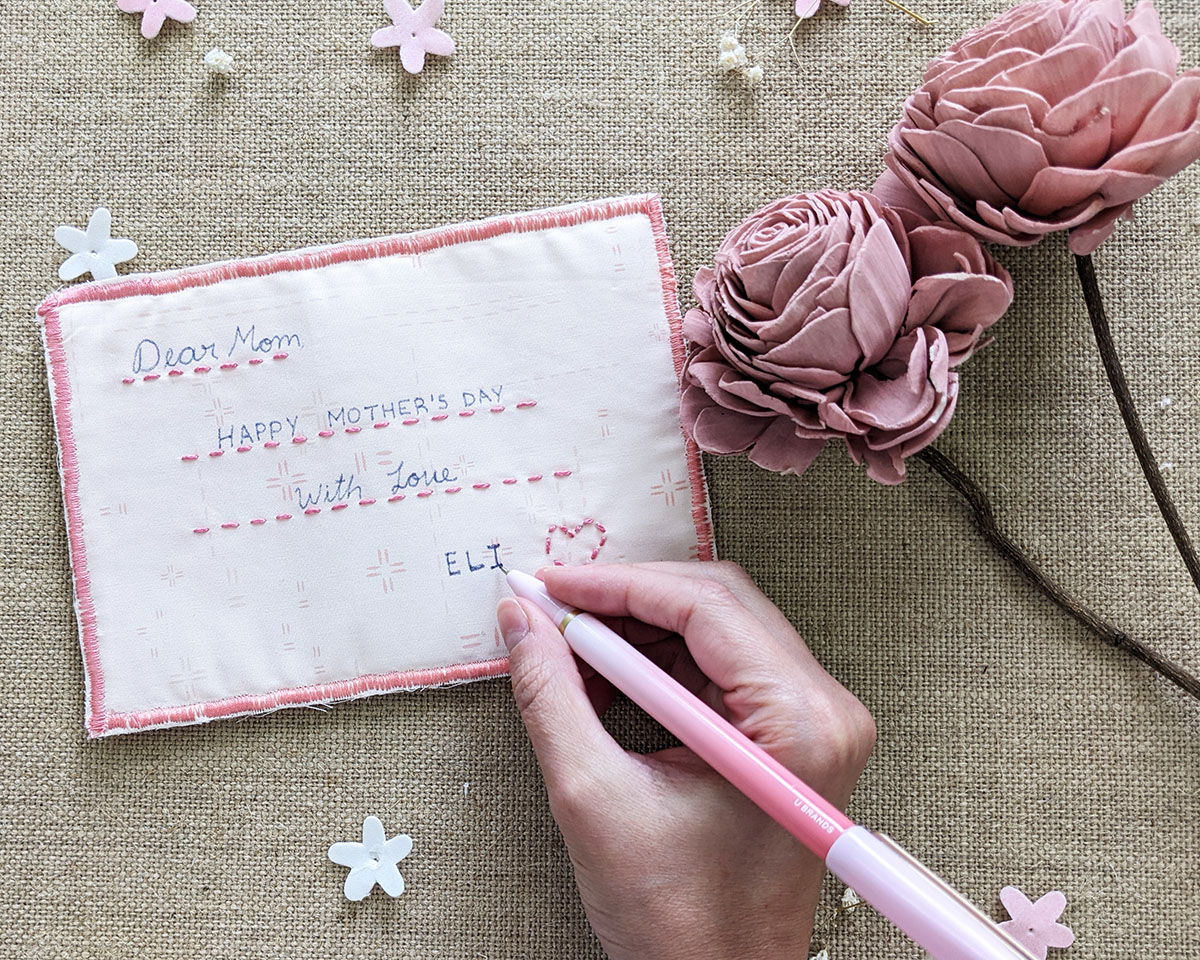 Dear Mom
HAPPY MOTHER'S DAY
With Love
ELI
U BRANDS